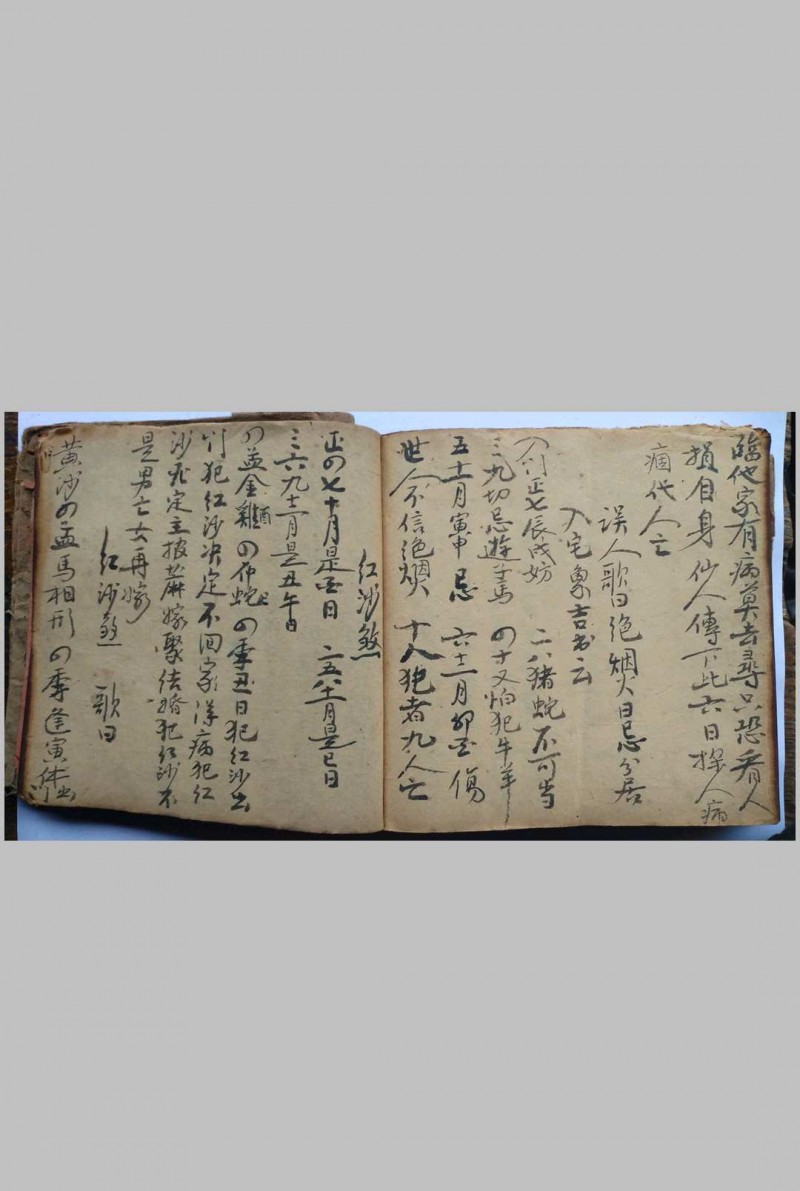 臨他家有病莫去尋只恐看人
損自身仙人傳下此六日探人病
痼代人亡
誤人歌曰絕烟火日忌分居
入宅象吉书云
正七辰戌妨 二八猪蛇不可当
三九切忌遊羊馬 四十又怕犯牛羊
五十一月寅申忌 六十二月卯酉傷
世人不信絕烟火 十人犯者九人亡
红沙煞
正四七十月是酉日 二五八十一月是巳日
三六九十二月是丑午日
四孟金雞 四仲蛇 四季丑日犯红沙出
行犯红沙决定不回家得病犯红
沙死定主披蔴嫁娶结婚犯红沙不
是男亡女再嫁
红沙煞 歌曰
黄沙四孟馬相形 四季逢寅